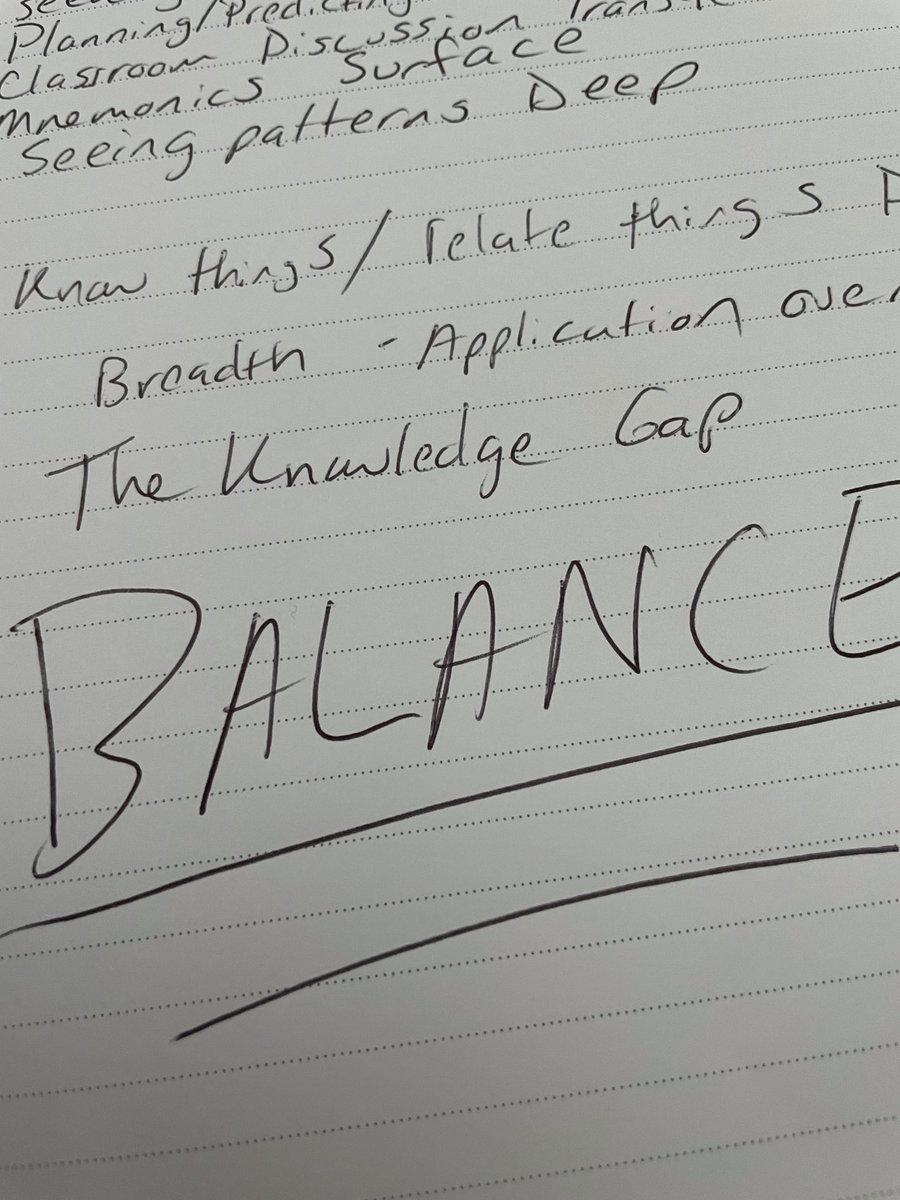 Planning/Predicting
Classroom Discussion
Mnemonics Surface
Seeing patterns Deep
Know things/relate things
Breadth - Application over
The Knowledge Gap
BALANCE